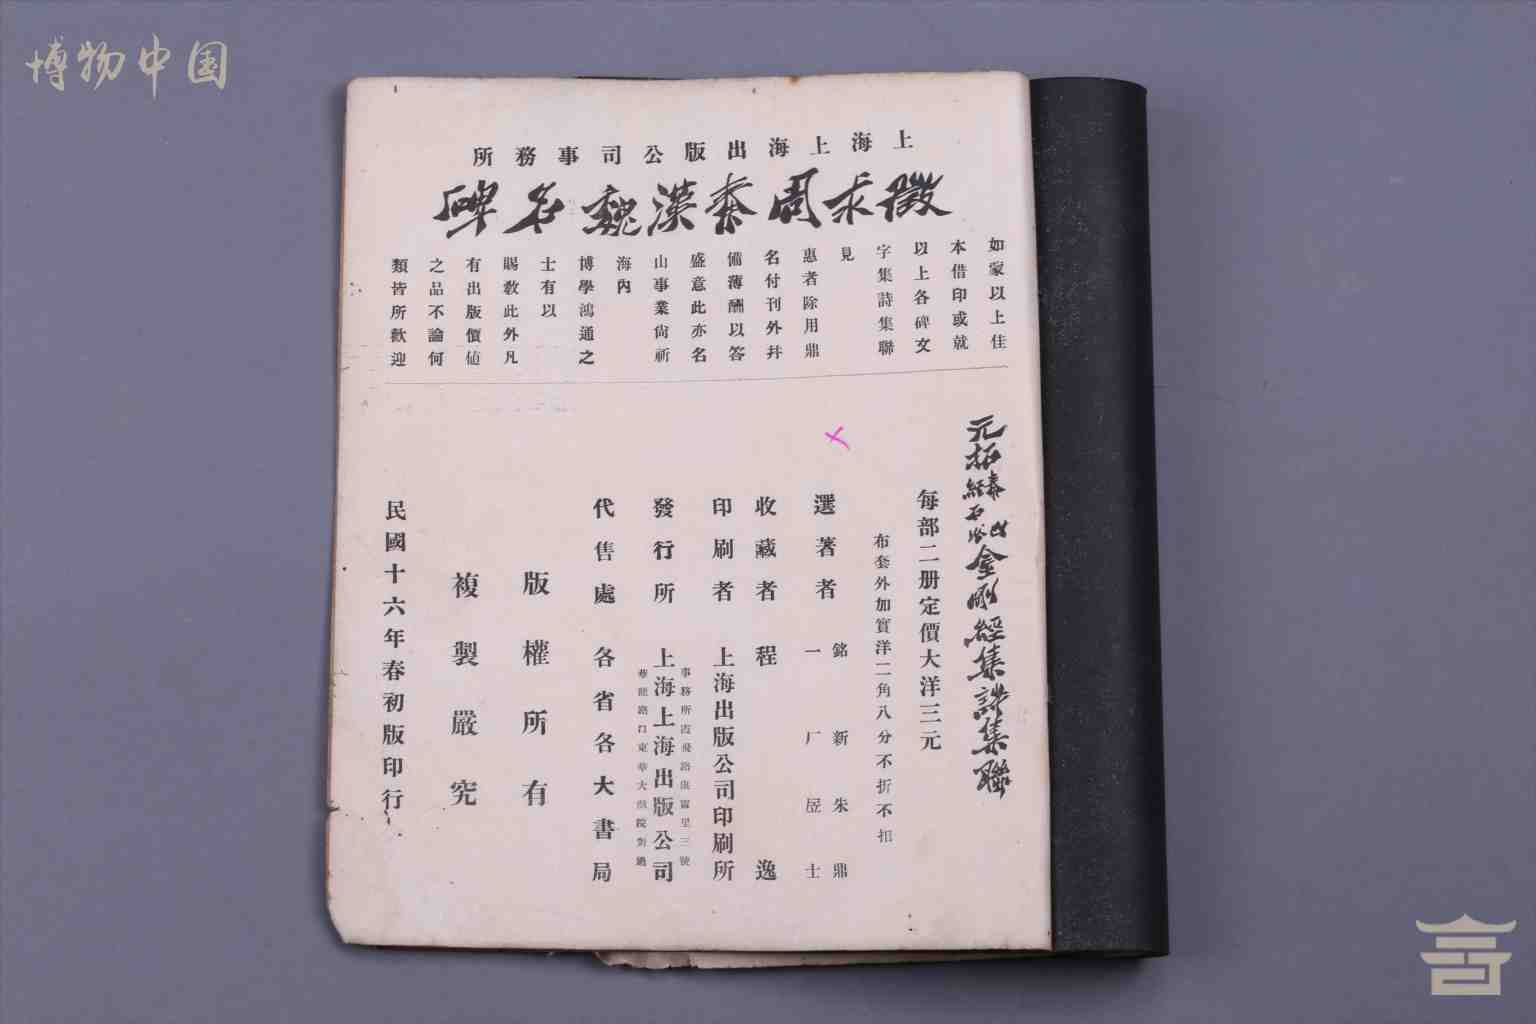 博物中国
上海上海出版公司事務所
徵求周秦漢魏名碑
如蒙以上佳
本借印或就
以上各碑文
字集詩集聯
見
惠者除用鼎
名付刊外幷
備薄酬以答
盛意此亦名
山事業尙祈
海內
博學鴻通之
士有以
賜敎此外凡
有出版價値
之品不論何
類皆所歡迎
金剛經集詩集聯
每部二册定價大洋三元
布套外加實洋二角八分不折不扣
選著者
銘新朱鼎
一厂居士
收藏者 程逸
印刷者 上海出版公司印刷所
發行所 上海上海出版公司
代售處 各省各大書局
版權所有
複製嚴究
民國十六年春初版印行